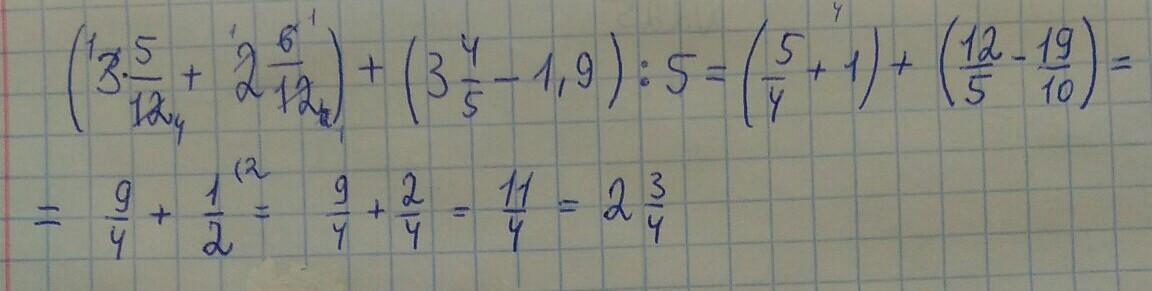 (3 · 5/12 + 2 6/12) + (3 4/5 - 1,9) : 5 = (5/4 + 1) + (12/5 - 19/10) =
= 9/4 + 1/2 (2 = 9/4 + 2/4 = 11/4 = 2 3/4